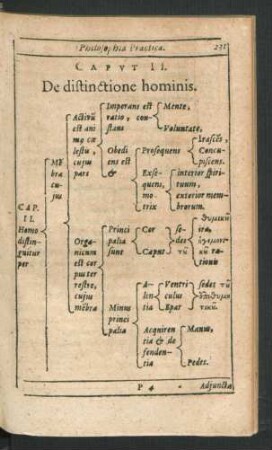 Philosophia Practica.
CAPVT II.
De distinctione hominis.
CAP.
II.
Homo
distin-
guitur
per
Mẽbra
cujus
Activũ
est ani
mo cæ
lestis,
cujus
pars
Imperans est
ratio, con-
stans
Mente,
Voluntate.
Obedi
ens est
&
Prosequens
Irascẽs,
Concu-
piscens.
Exse-
quens,
mo-
trix
interior spiri-
tuum,
exterior mem-
brorum.
Orga-
nicum
est cor
pus ter
restre,
cujus
mẽbra
Princi
palia
sunt
Cor
Caput
se-
des
θυμικῆ
ira,
ἡγεμονι-
κῆ ra-
tionis
Minus
princi
palia
A-
len
tia
Ventri
culus
Epar
sedes
Acquiren
tia & de
fenden-
tia
Manus,
Pedes.
P 4
Adjuncta